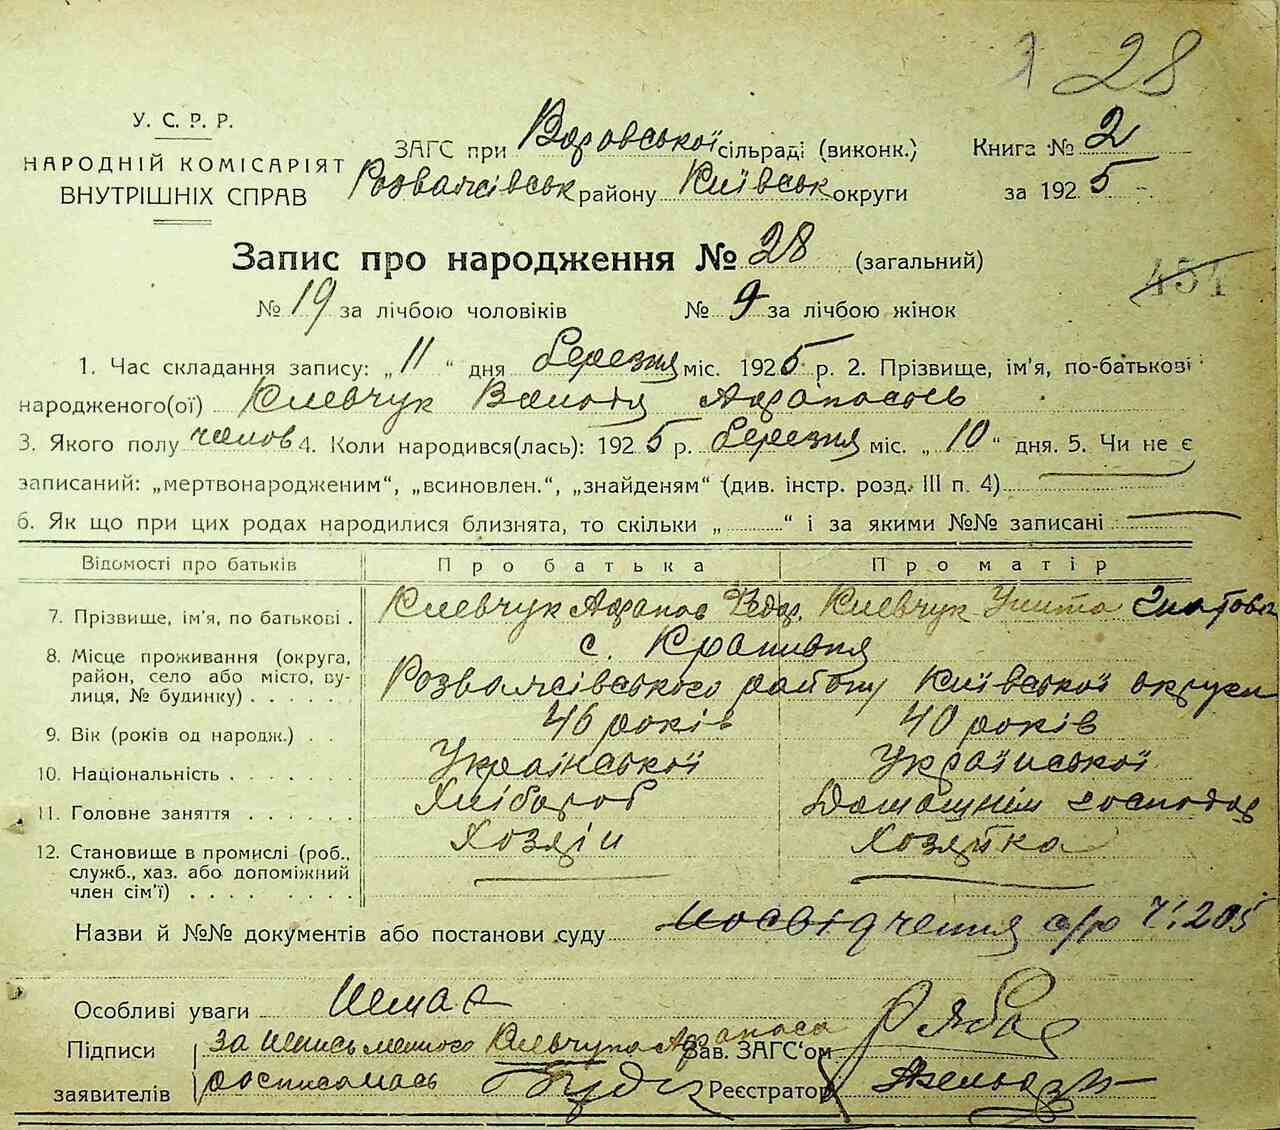 28
У. С. Р. Р.
НАРОДНІЙ КОМІСАРІЯТ
ВНУТРІШНІХ СПРАВ
ЗАГС при Воровської сільраді (виконк.)
Розважівськ району Київськ округи
Книга № 2
за 1925
Запис про народження № 28 (загальний)
451
№ 19 за лічбою чоловіків № 9 за лічбою жінок
1. Час складання запису: „11“ дня березня міс. 1925 р. 2. Прізвище, ім'я, по-батькові
народженого(ої) Клевчук
3. Якого полу чолов 4. Коли народився(лась): 1925 р. березня міс. „10“ дня. 5. Чи не є
записаний: „мертвонародженим“, „всиновлен.“, „знайденям“ (див. інстр. розд. III п. 4)
6. Як що при цих родах народилися близнята, то скільки „ “ і за якими №№ записані
Відомості про батьків Про батька Про матір
7. Прізвище, ім'я, по батькові . Клевчук Афанас Федор. Клевчук
8. Місце проживання (округа, с. Крапивня
район, село або місто, ву- Розважівського району Київської округи
лиця, № будинку)
9. Вік (років од народж.) 46 років 40 років
10. Національність Української Української
11. Головне заняття Хлібороб Домашнім господар
12. Становище в промислі (роб., Хозяїн Хозяйка
служб., хаз. або допоміжний
член сім'ї)
Назви й №№ документів або постанови суду посвідчення с/р Ч. 205
Особливі уваги Немає
Підписи за неписьменного Клевчука Афанаса Зав. ЗАГС'ом
заявителів росписалась Реєстратор